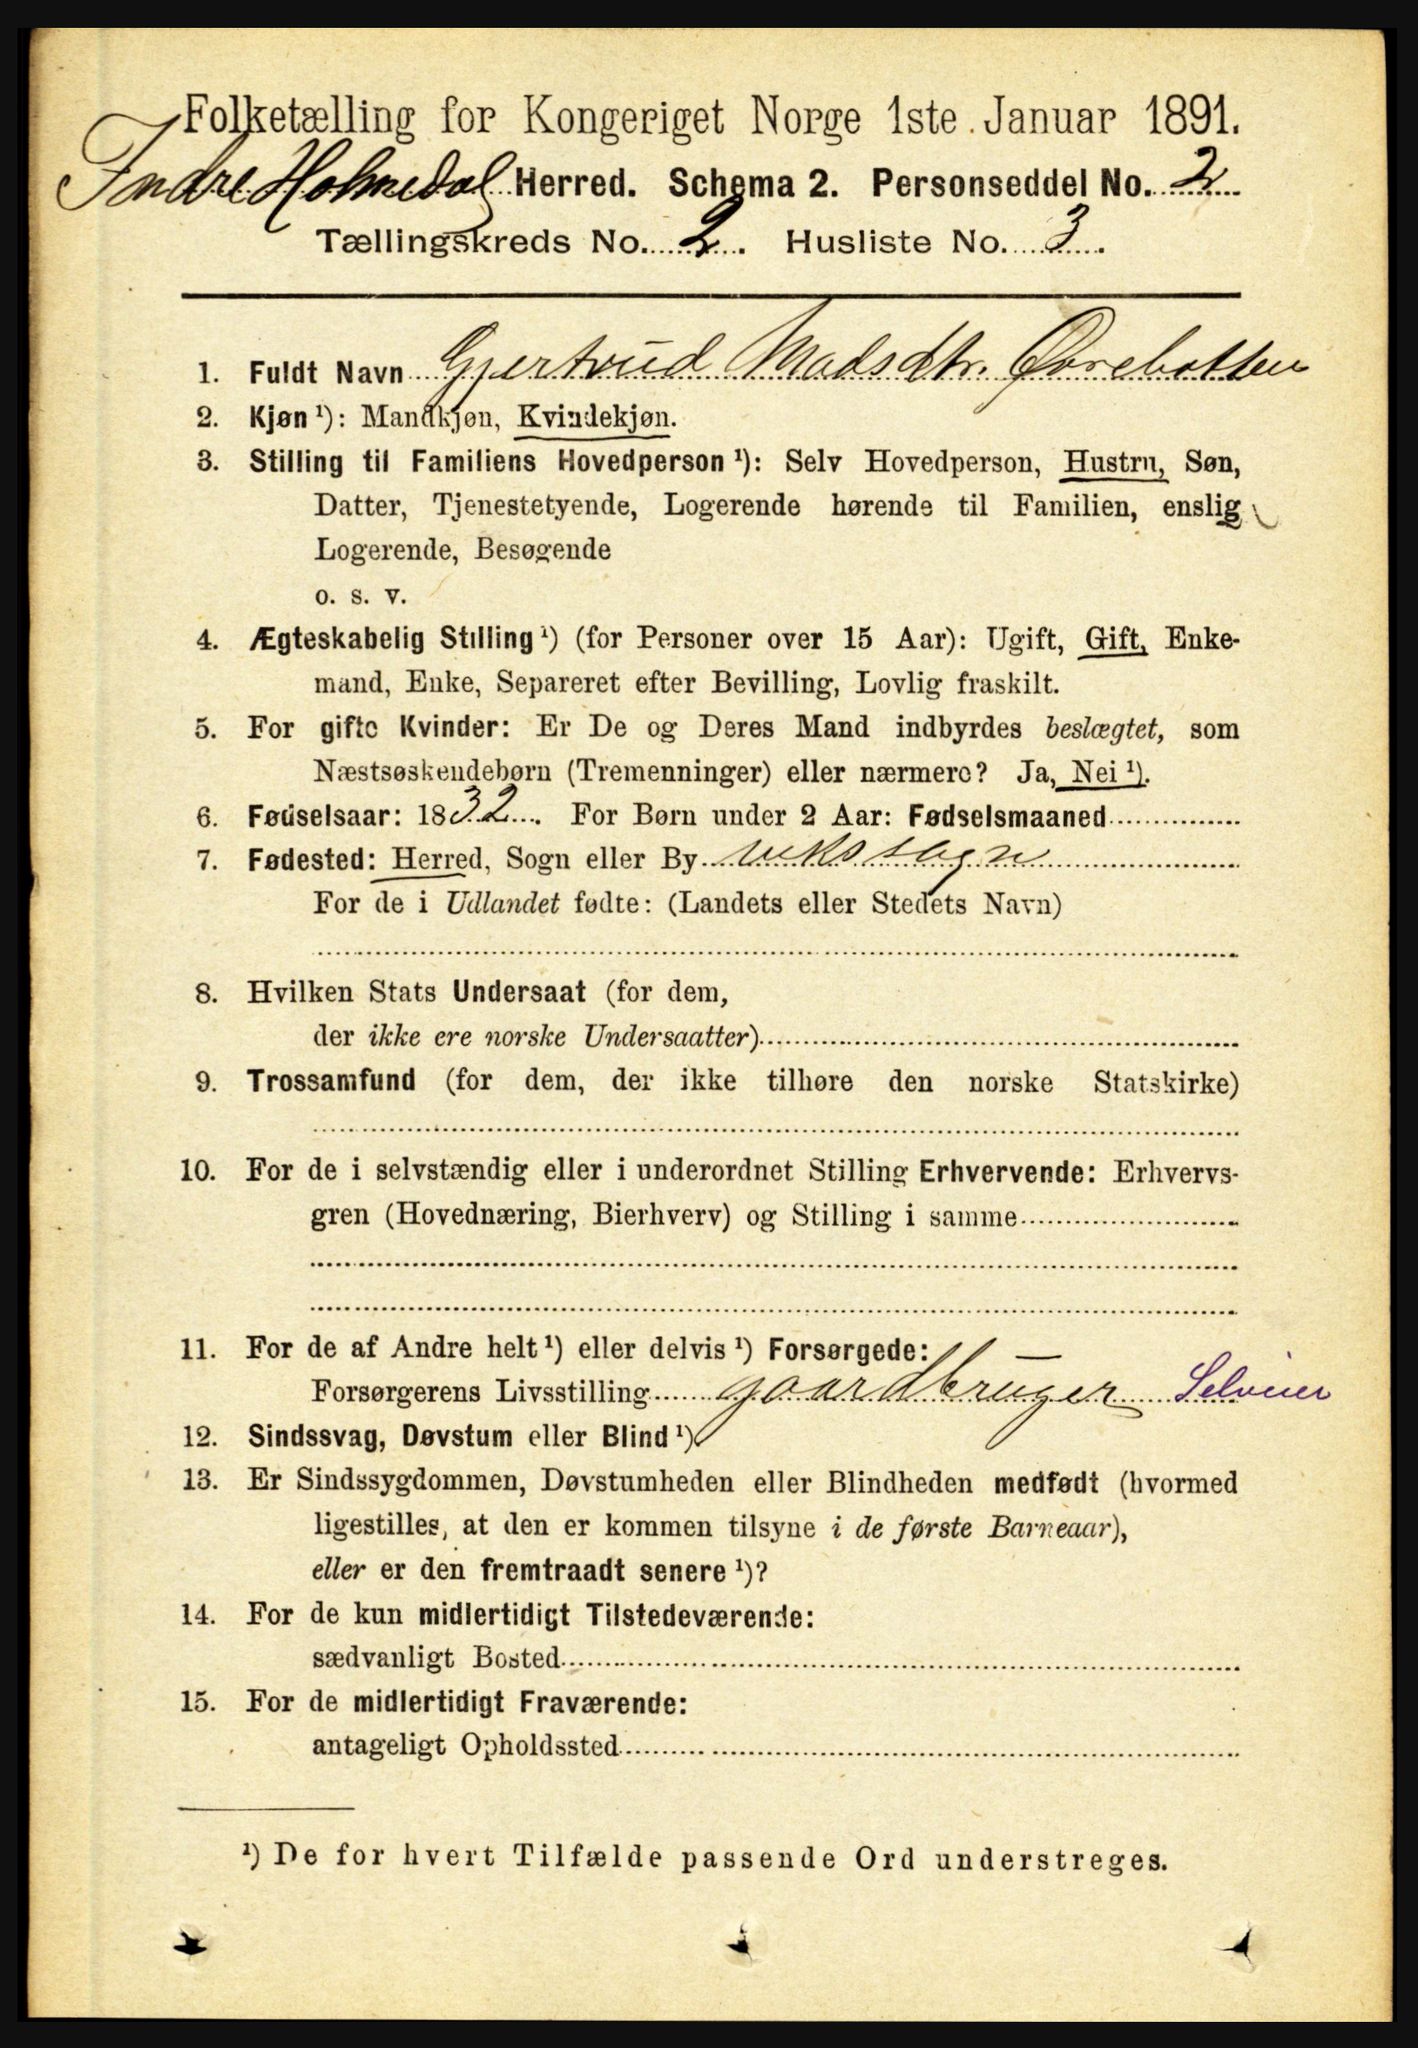 Folketælling for Kongeriget Norge 1ste Januar 1891.
Indre Holmedal Herred. Schema 2. Personseddel No. 2
Tællingskreds No. 2. Husliste No. 3.
1. Fuldt Navn Gjertrud Madsdtr. Øvrebotten
2. Kjøn ¹): Mandkjøn, Kvindekjøn.
3. Stilling til Familiens Hovedperson ¹): Selv Hovedperson, Hustru, Søn,
Datter, Tjenestetyende, Logerende hørende til Familien, enslig
Logerende, Besøgende
o. s. v.
4. Ægteskabelig Stilling ¹) (for Personer over 15 Aar): Ugift, Gift, Enke-
mand, Enke, Separeret efter Bevilling, Lovlig fraskilt.
5. For gifte Kvinder: Er De og Deres Mand indbyrdes beslægtet, som
Næstsøskendebørn (Tremenninger) eller nærmere? Ja, Nei ¹).
6. Fødselsaar: 1832. For Børn under 2 Aar: Fødselsmaaned
7. Fødested: Herred, Sogn eller By viks sogn
For de i Udlandet fødte: (Landets eller Stedets Navn)
8. Hvilken Stats Undersaat (for dem,
der ikke ere norske Undersaatter)
9. Trossamfund (for dem, der ikke tilhøre den norske Statskirke)
10. For de i selvstændig eller i underordnet Stilling Erhvervende: Erhvervs-
gren (Hovednæring, Bierhverv) og Stilling i samme
11. For de af Andre helt ¹) eller delvis ¹) Forsørgede:
Forsørgerens Livsstilling gaardbruger Selveier
12. Sindssvag, Døvstum eller Blind ¹)
13. Er Sindssygdommen, Døvstumheden eller Blindheden medfødt (hvormed
ligestilles, at den er kommen tilsyne i de første Barneaar),
eller er den fremtraadt senere ¹)?
14. For de kun midlertidigt Tilstedeværende:
sædvanligt Bosted
15. For de midlertidigt Fraværende:
antageligt Opholdssted
¹) De for hvert Tilfælde passende Ord understreges.